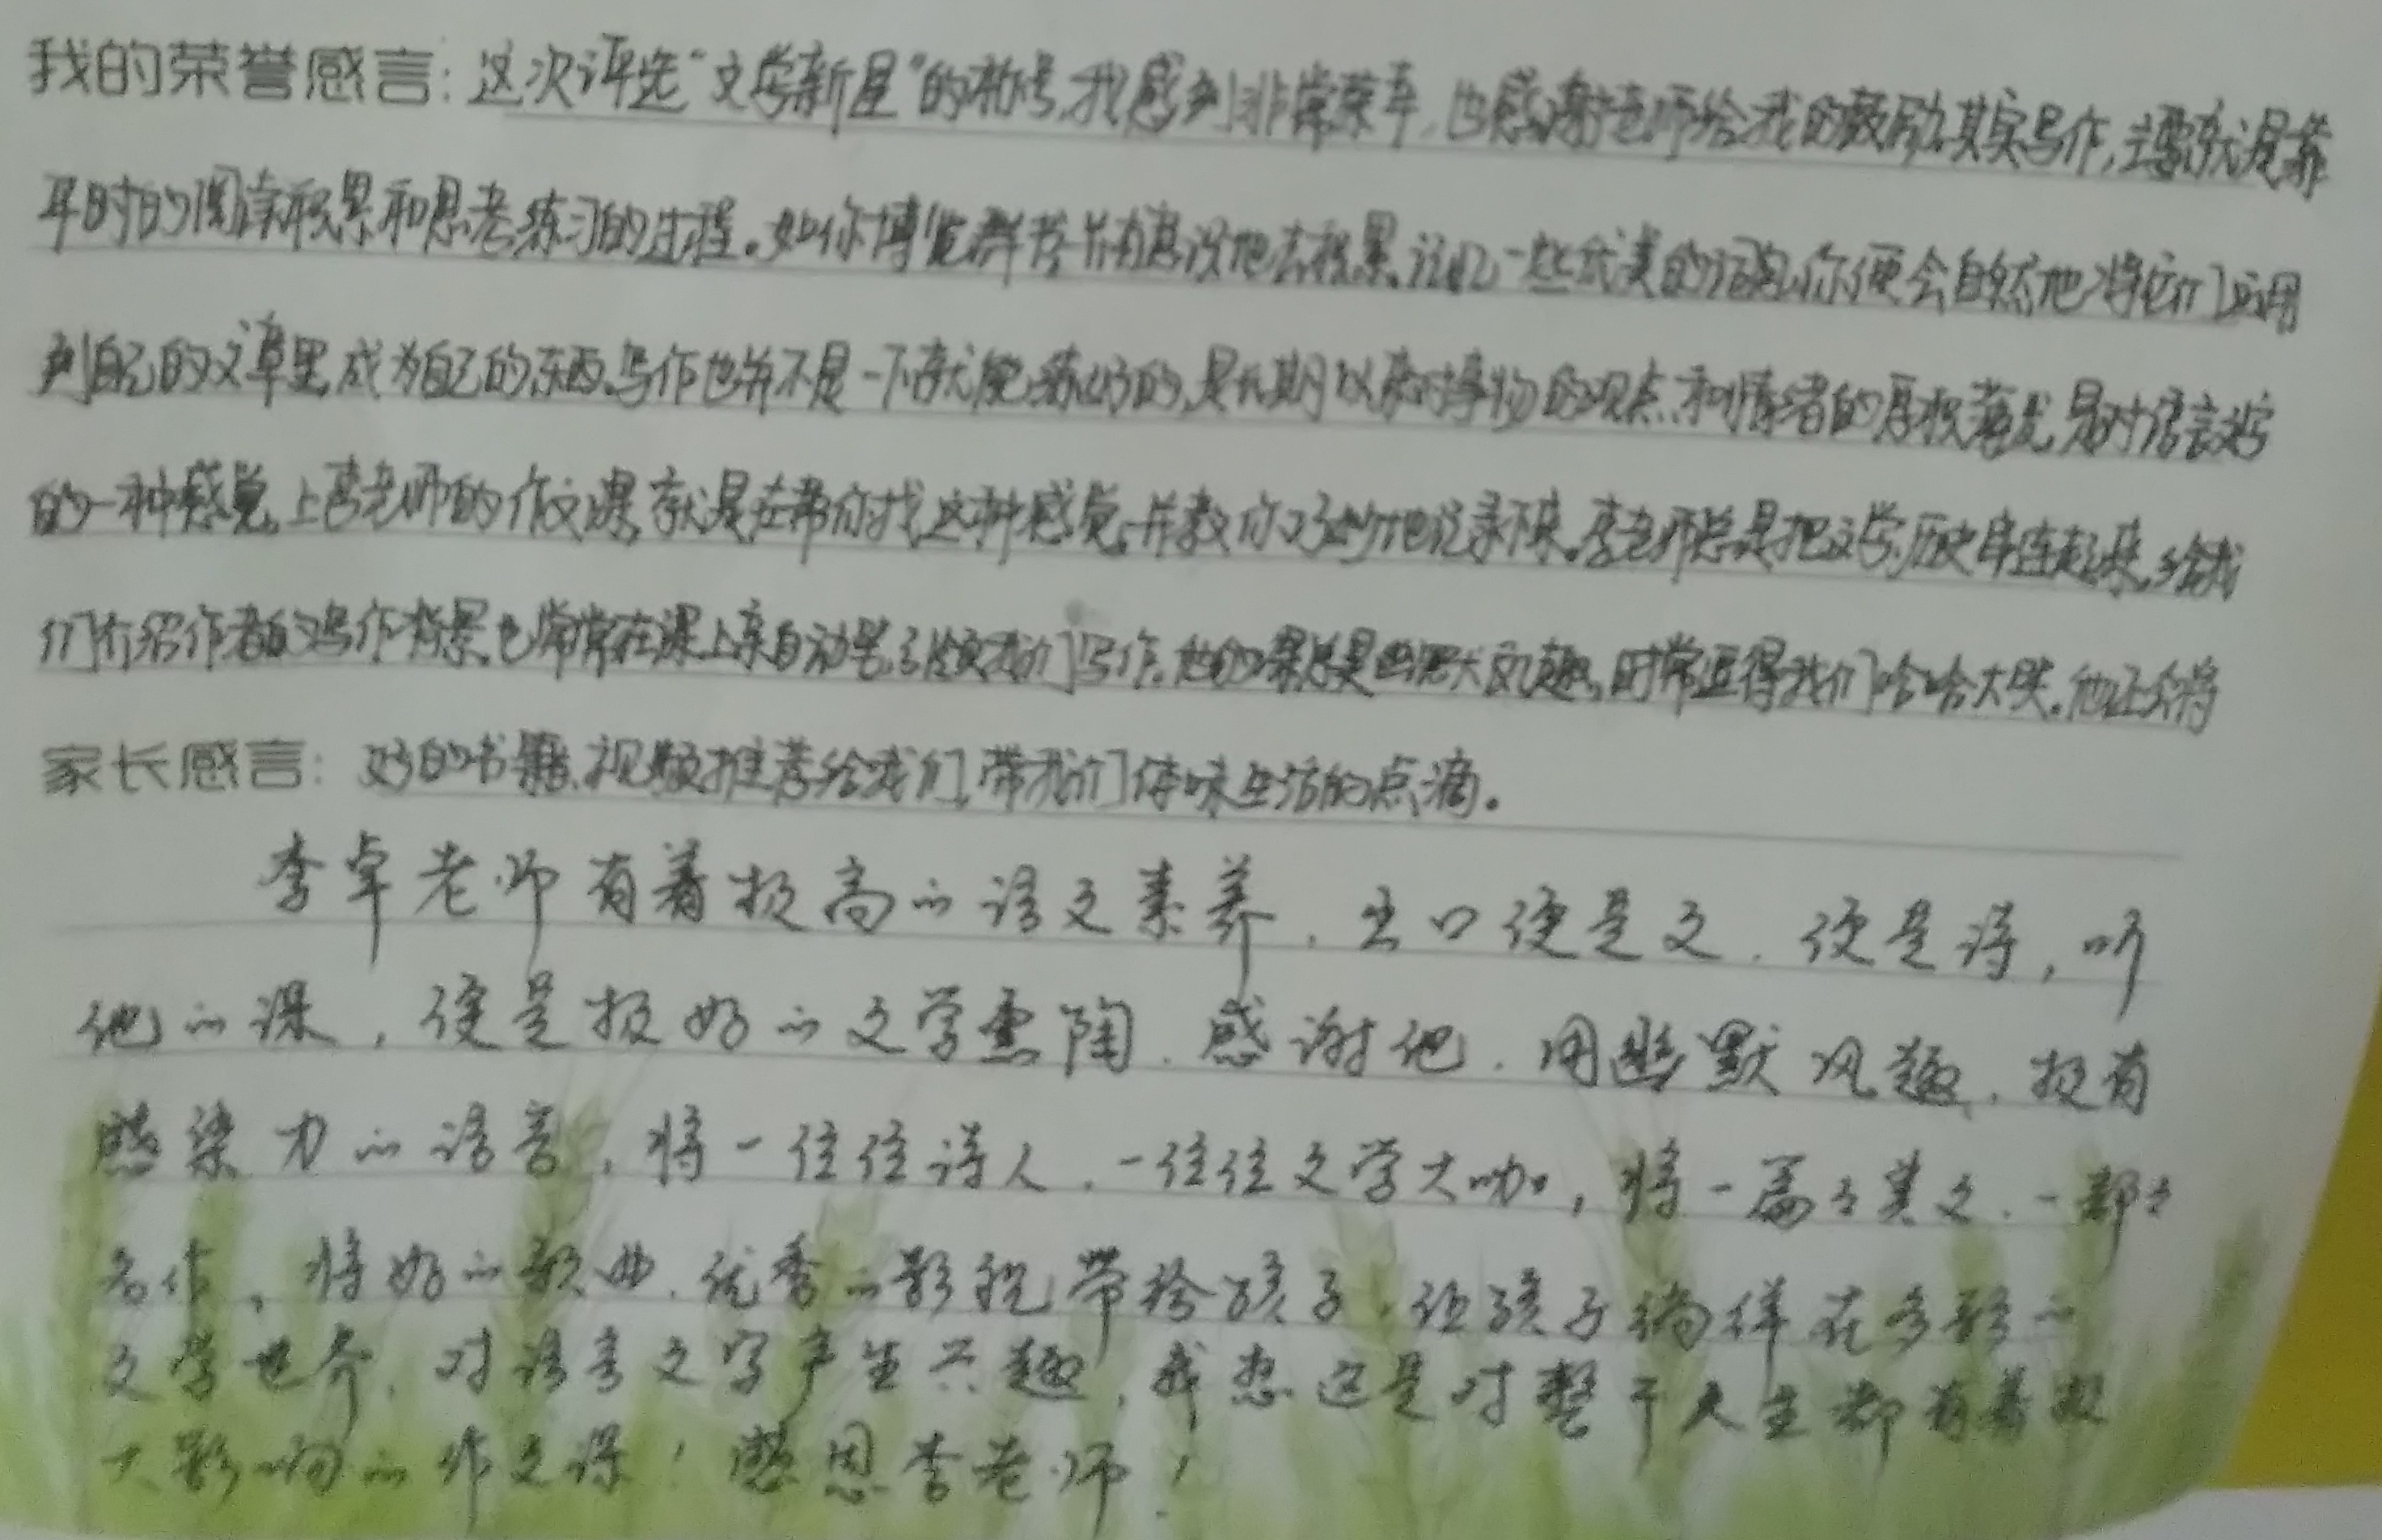 我的荣誉感言：这次评选“文学新星”的称号，我感到非常荣幸，也感谢老师给我的鼓励，其实写作，主要就是靠
平时的阅读积累和思考练习的过程。如你博览群书，并有意识地去积累、记忆一些优美的词句，你便会自然地将它们运用
到自己的文章里，成为自己的东西。写作也并不是一下就能练好的，是长期以来对事物的观点和情绪的厚积薄发，是对语言文字
的一种感觉。上李老师的作文课，就是在帮你找这种感觉，并教你巧妙地记录下来。李老师总是把文学、历史串连起来，给我
们介绍作者的写作背景，也常常在课上亲自动笔引领我们写作。他的课总是幽默风趣，时常逗得我们哈哈大笑。他还会将
家长感言：好的书籍、视频推荐给我们，带我们体味生活的点滴。
李卓老师有着极高的语文素养，出口便是文，便是诗，听
他的课，便是极好的文学熏陶，感谢他，用幽默风趣，极有
感染力的语言，将一位位诗人，一位位文学大咖，将一篇々美文，一部々
名作，将好的歌曲，优秀的影视带给孩子，让孩子徜徉在多彩的
文学世界，对语言文字产生兴趣，我想这是对整个人生都有着极
大影响的作文课！感恩李老师！